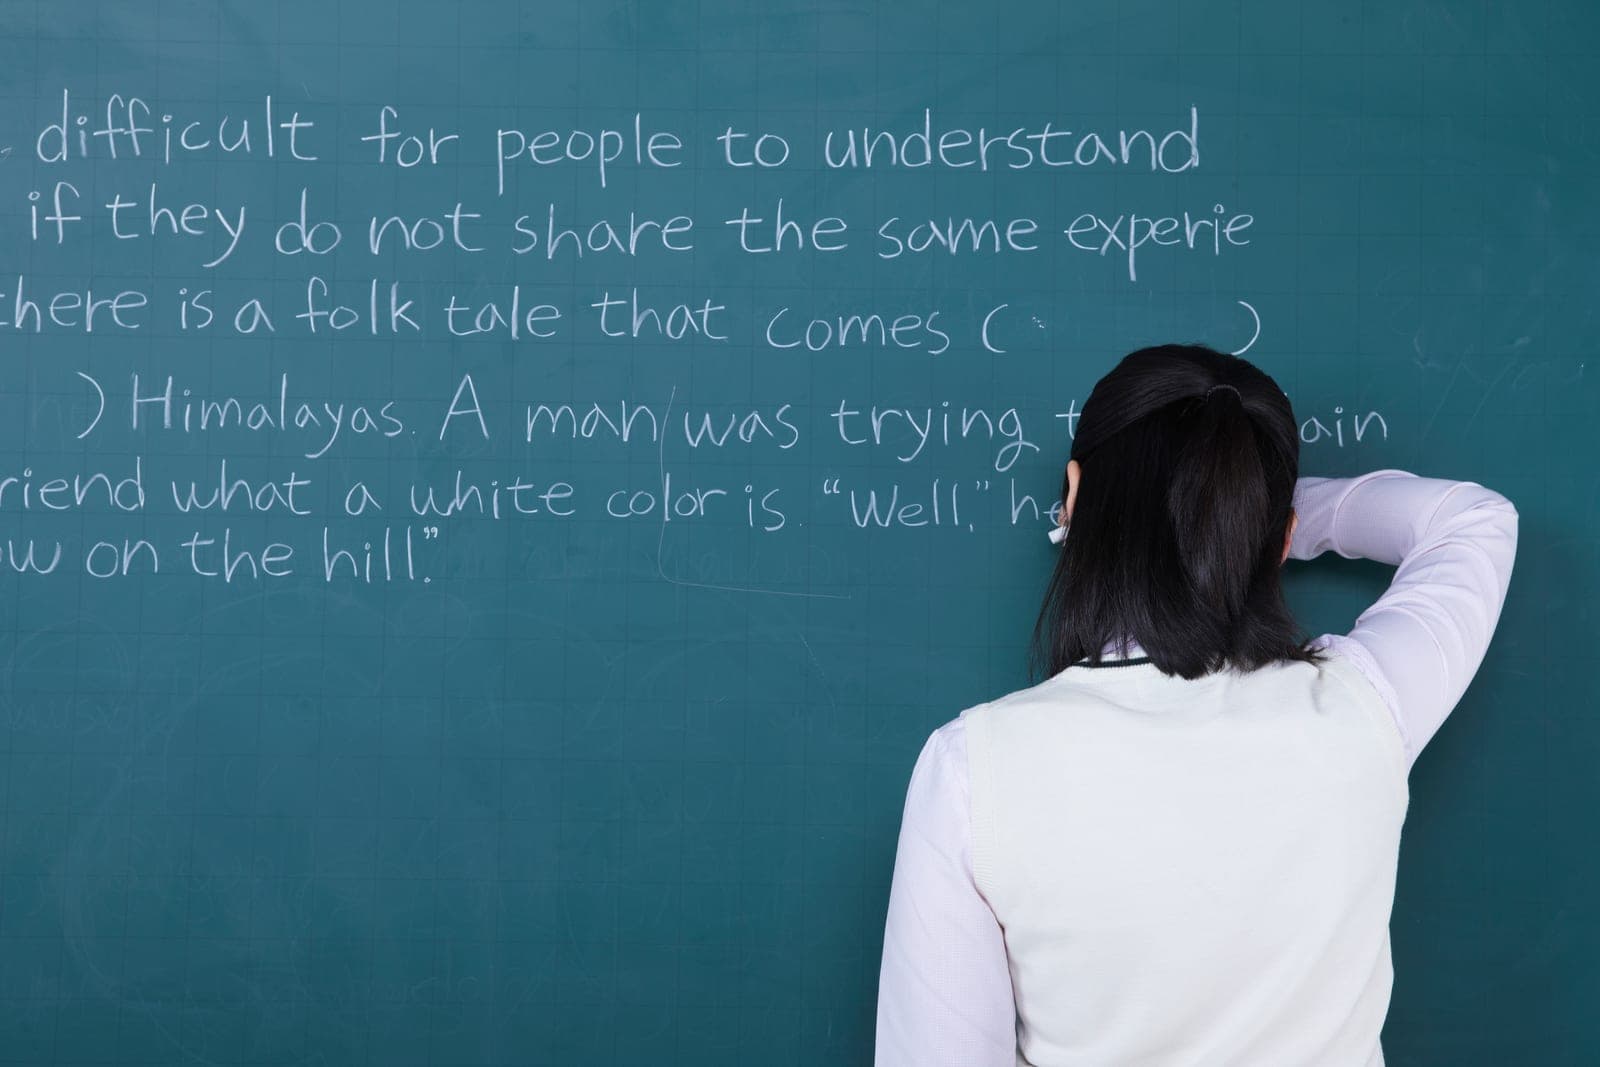 difficult for people to understand
if they do not share the same experie
here is a folk tale that comes ( )
) Himalayas. A man was trying t ain
riend what a white color is. "Well," he
w on the hill."